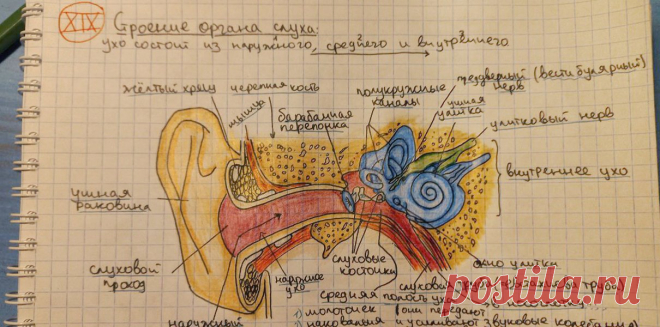 XIX
Строение органа слуха:
ухо состоит из наружного, среднего и внутреннего
1 2 3
жёлтый хрящ
черепная кость
мышца
барабанная перепонка
полукружные каналы
преддверный (вестибулярный) нерв
ушная улитка
улитковый нерв
внутреннее ухо
ушная раковина
слуховой проход
наружное ухо
слуховые косточки
окно улитки
слуховая труба (евстахиева труба)
средняя полость уха
наружный
1) молоточек (они передают
2) наковальня и усиливают звуковые колебания)
postila.ru